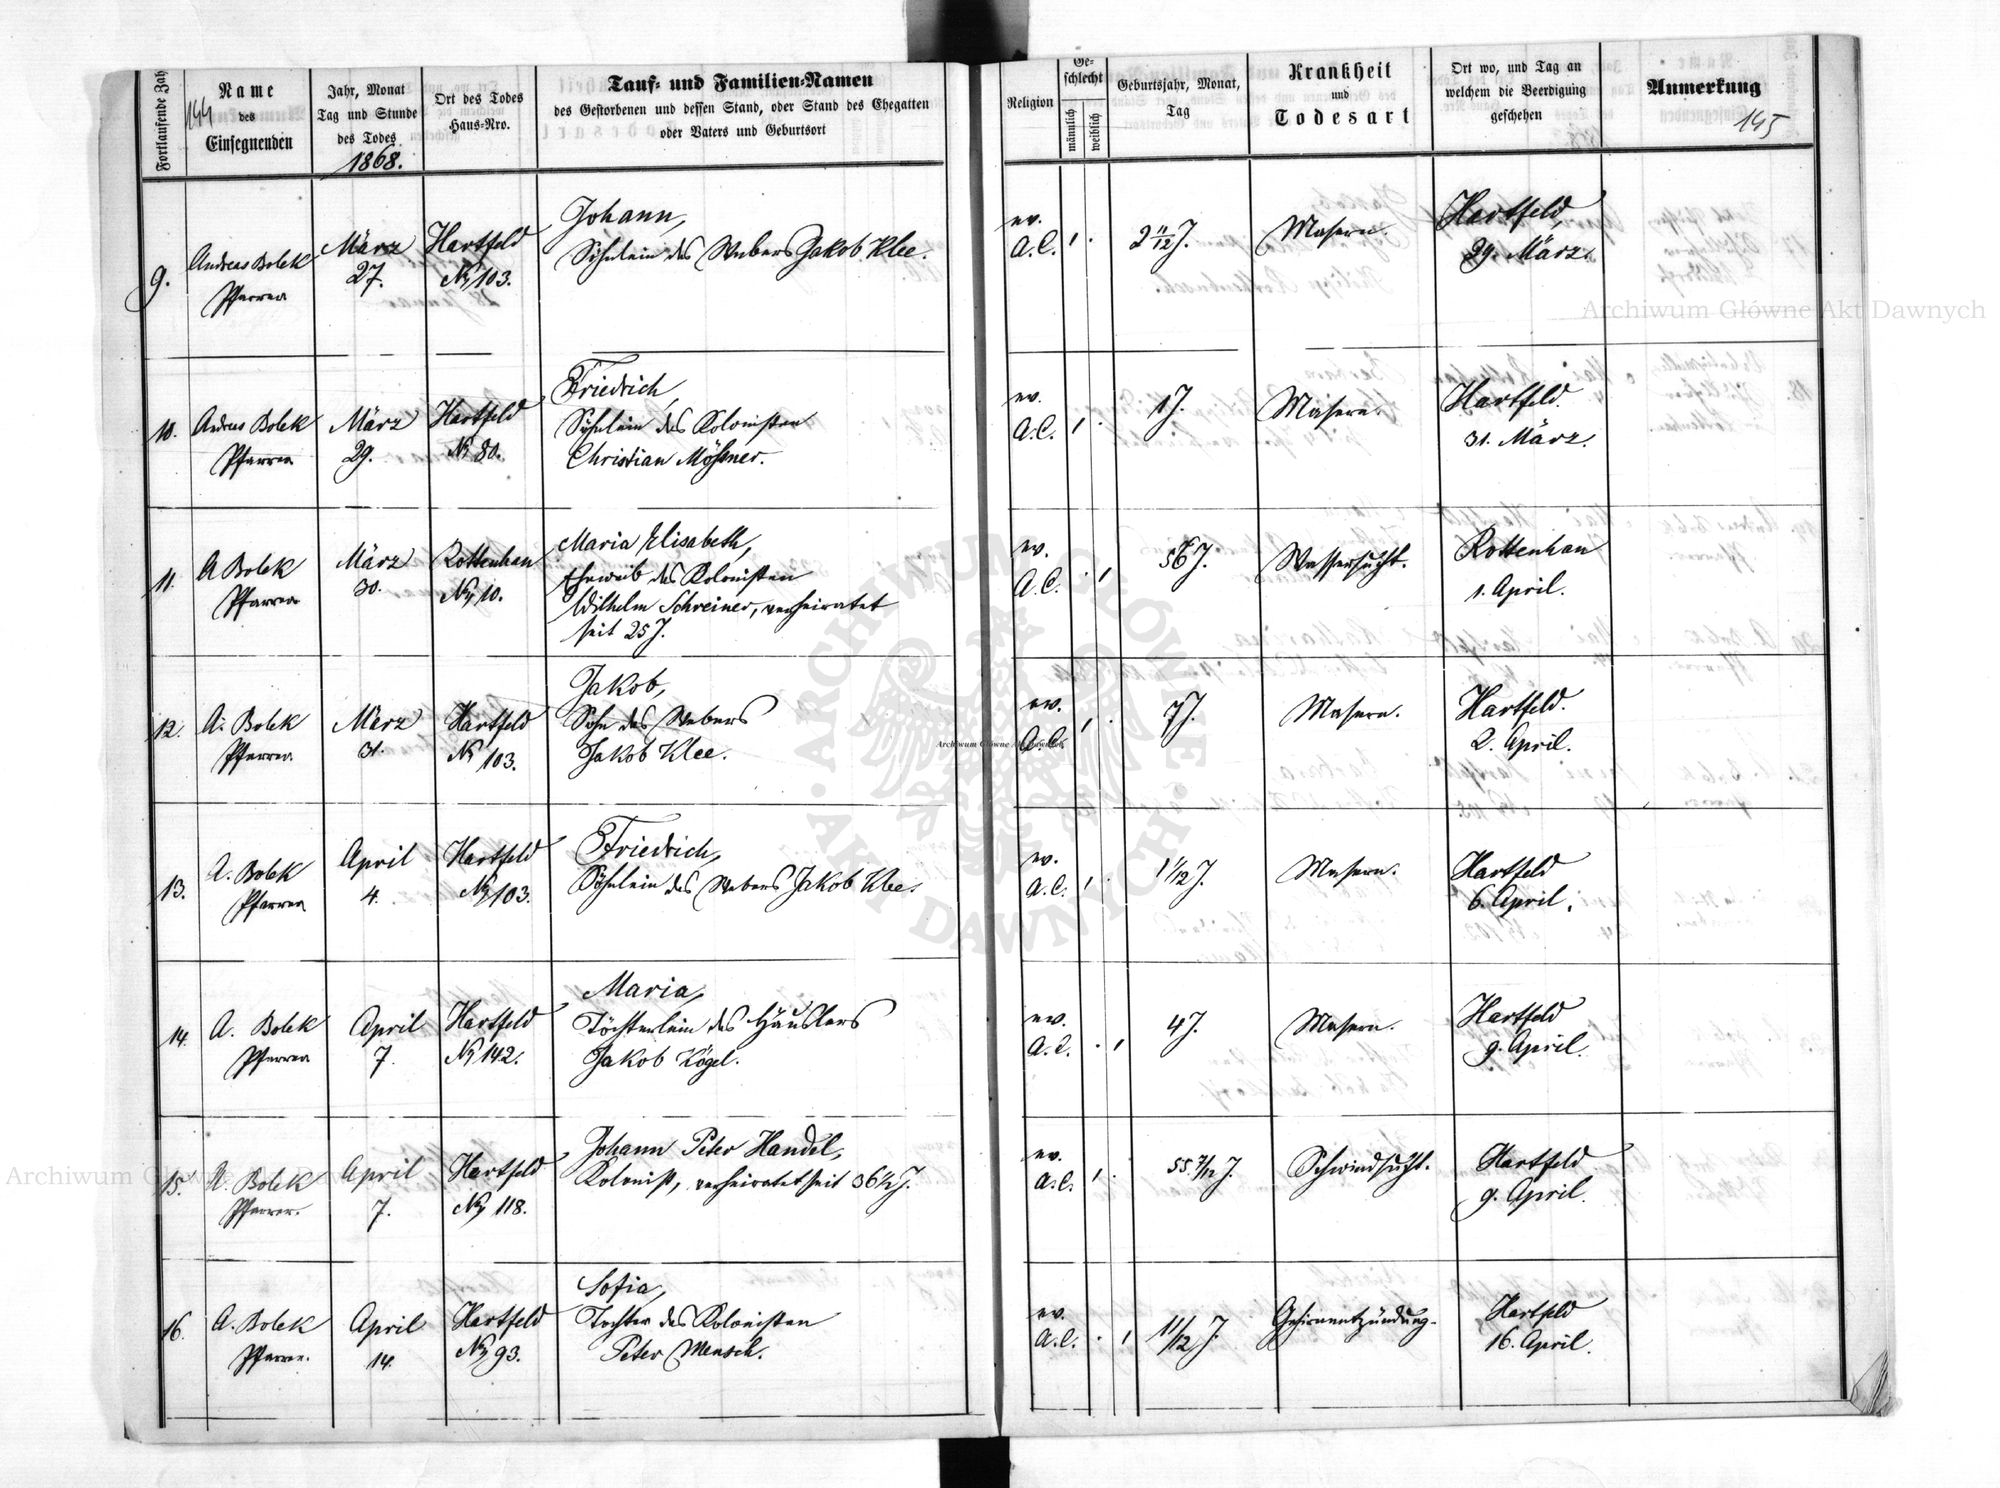 Fortlaufende Zahl
144
Name
des
Einsegnenden
Jahr, Monat
Tag und Stunde
des Todes
1868.
Ort des Todes
Haus-Nro.
Tauf- und Familien-Namen
des Gestorbenen und dessen Stand, oder Stand des Ehegatten
oder Vaters und Geburtsort
Religion
Ge-
schlecht
männlich
weiblich
Geburtsjahr, Monat,
Tag
Krankheit
und
Todesart
Ort wo, und Tag an
welchem die Beerdigung
geschehen
Anmerkung
145
9.
Andreas Bolek
Pfarrer
März
27.
Hartfeld
No 103.
Johann,
Söhnlein des Webers Jakob Klee.
ev.
A.C.
2 11/12 J.
Masern.
Hartfeld,
29. März.
10.
Andreas Bolek
Pfarrer
März
29.
Hartfeld
No 80.
Friedrich,
Söhnlein des Kolonisten
Christian Mößner.
ev.
A.C.
1 J.
Masern.
Hartfeld.
31. März.
11.
A Bolek
Pfarrer
März
30.
Rottenhan
No 10.
Maria Elisabeth,
Eheweib des Kolonisten
Wilhelm Schreiner, verheiratet
seit 25 J.
ev.
A.C.
56 J.
Wassersucht.
Rottenhan
1. April.
12.
A. Bolek
Pfarrer
März
31.
Hartfeld
No 103.
Jakob,
Sohn des Webers
Jakob Klee.
ev.
A.C.
7 J.
Masern.
Hartfeld.
2. April.
13.
A. Bolek
Pfarrer
April
4.
Hartfeld
No 103.
Friedrich,
Söhnlein des Webers Jakob Klee.
ev.
A.C.
1 1/12 J.
Masern.
Hartfeld
6. April.
14.
A. Bolek
Pfarrer
April
7.
Hartfeld
No 142.
Maria,
Töchterlein des Häuslers
Jakob Kögel.
ev.
A.C.
4 J.
Masern.
Hartfeld
9. April.
15.
A. Bolek
Pfarrer.
April
7.
Hartfeld
No 118.
Johann Peter Handel,
Kolonist, verheiratet seit 36 1/2 J.
ev.
A.C.
55 7/12 J.
Schwindsucht.
Hartfeld
9. April.
16.
A. Bolek
Pfarrer.
April
14.
Hartfeld
No 93.
Sofia,
Tochter des Kolonisten
Peter Mensch.
ev.
A.C.
11/12 J.
Gehirnentzündung.
Hartfeld
16. April.
Archiwum Główne Akt Dawnych
Archiwum Główne Akt Dawnych
Archiwum Główne Akt Dawnych
ARCHIWUM GŁÓWNE
AKT DAWNYCH